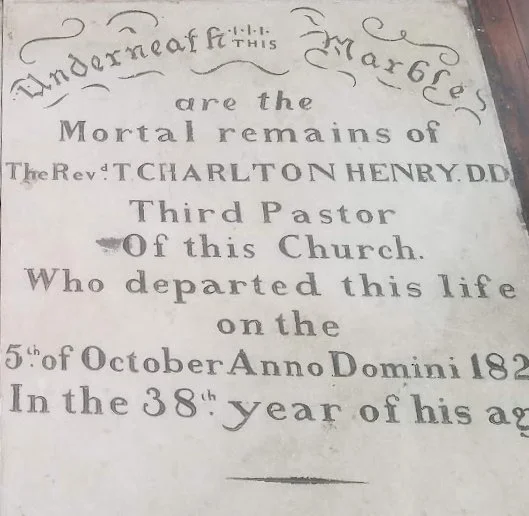 Underneath THIS Marbles
are the
Mortal remains of
The Revd. T. CHARLTON HENRY. D.D
Third Pastor
Of this Church.
Who departed this life
on the
5th. of October Anno Domini 182
In the 38th. year of his ag